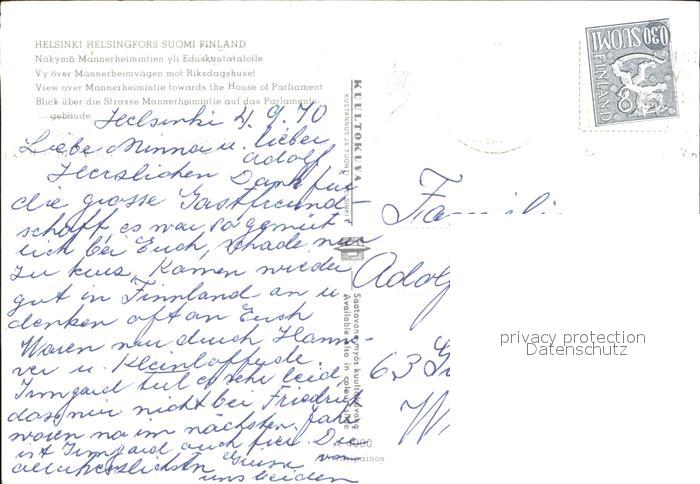 HELSINKI HELSINGFORS SUOMI FINLAND
Näkymä Mannerheimintien yli Eduskuntatalolle
Vy över Mannerheimvägen mot Riksdagshuset
View over Mannerheimintie towards the House of Parliament
Blick über die Strasse Mannerheimintie auf das Parlaments-
gebäude
Helsinki 4.9.70
Liebe Minna u. lieber
Adolf
Herzlichen Dank für
die grosse Gastfreund-
schaft, es war so gemüt
lich bei Euch, schade nur
zu kurz. Kamen wieder
gut in Finnland an u
denken oft an Euch
Waren nur durch Hanno-
ver u.
Irmgard tut es sehr leid,
das wir nicht bei Friedrich
waren na im nächsten Jahr
ist Irmgard auch frei. Die
allerherzlichsten Grüsse von
uns beiden
KUULTOKUVA
KUSTANNUS JA TUONTI HELSINKI
Saatavana myös kuultokuvana
Available also in colour slide
0,30 SUOMI
FINLAND
Famili
Adolf
63 G
W
privacy protection
Datenschutz